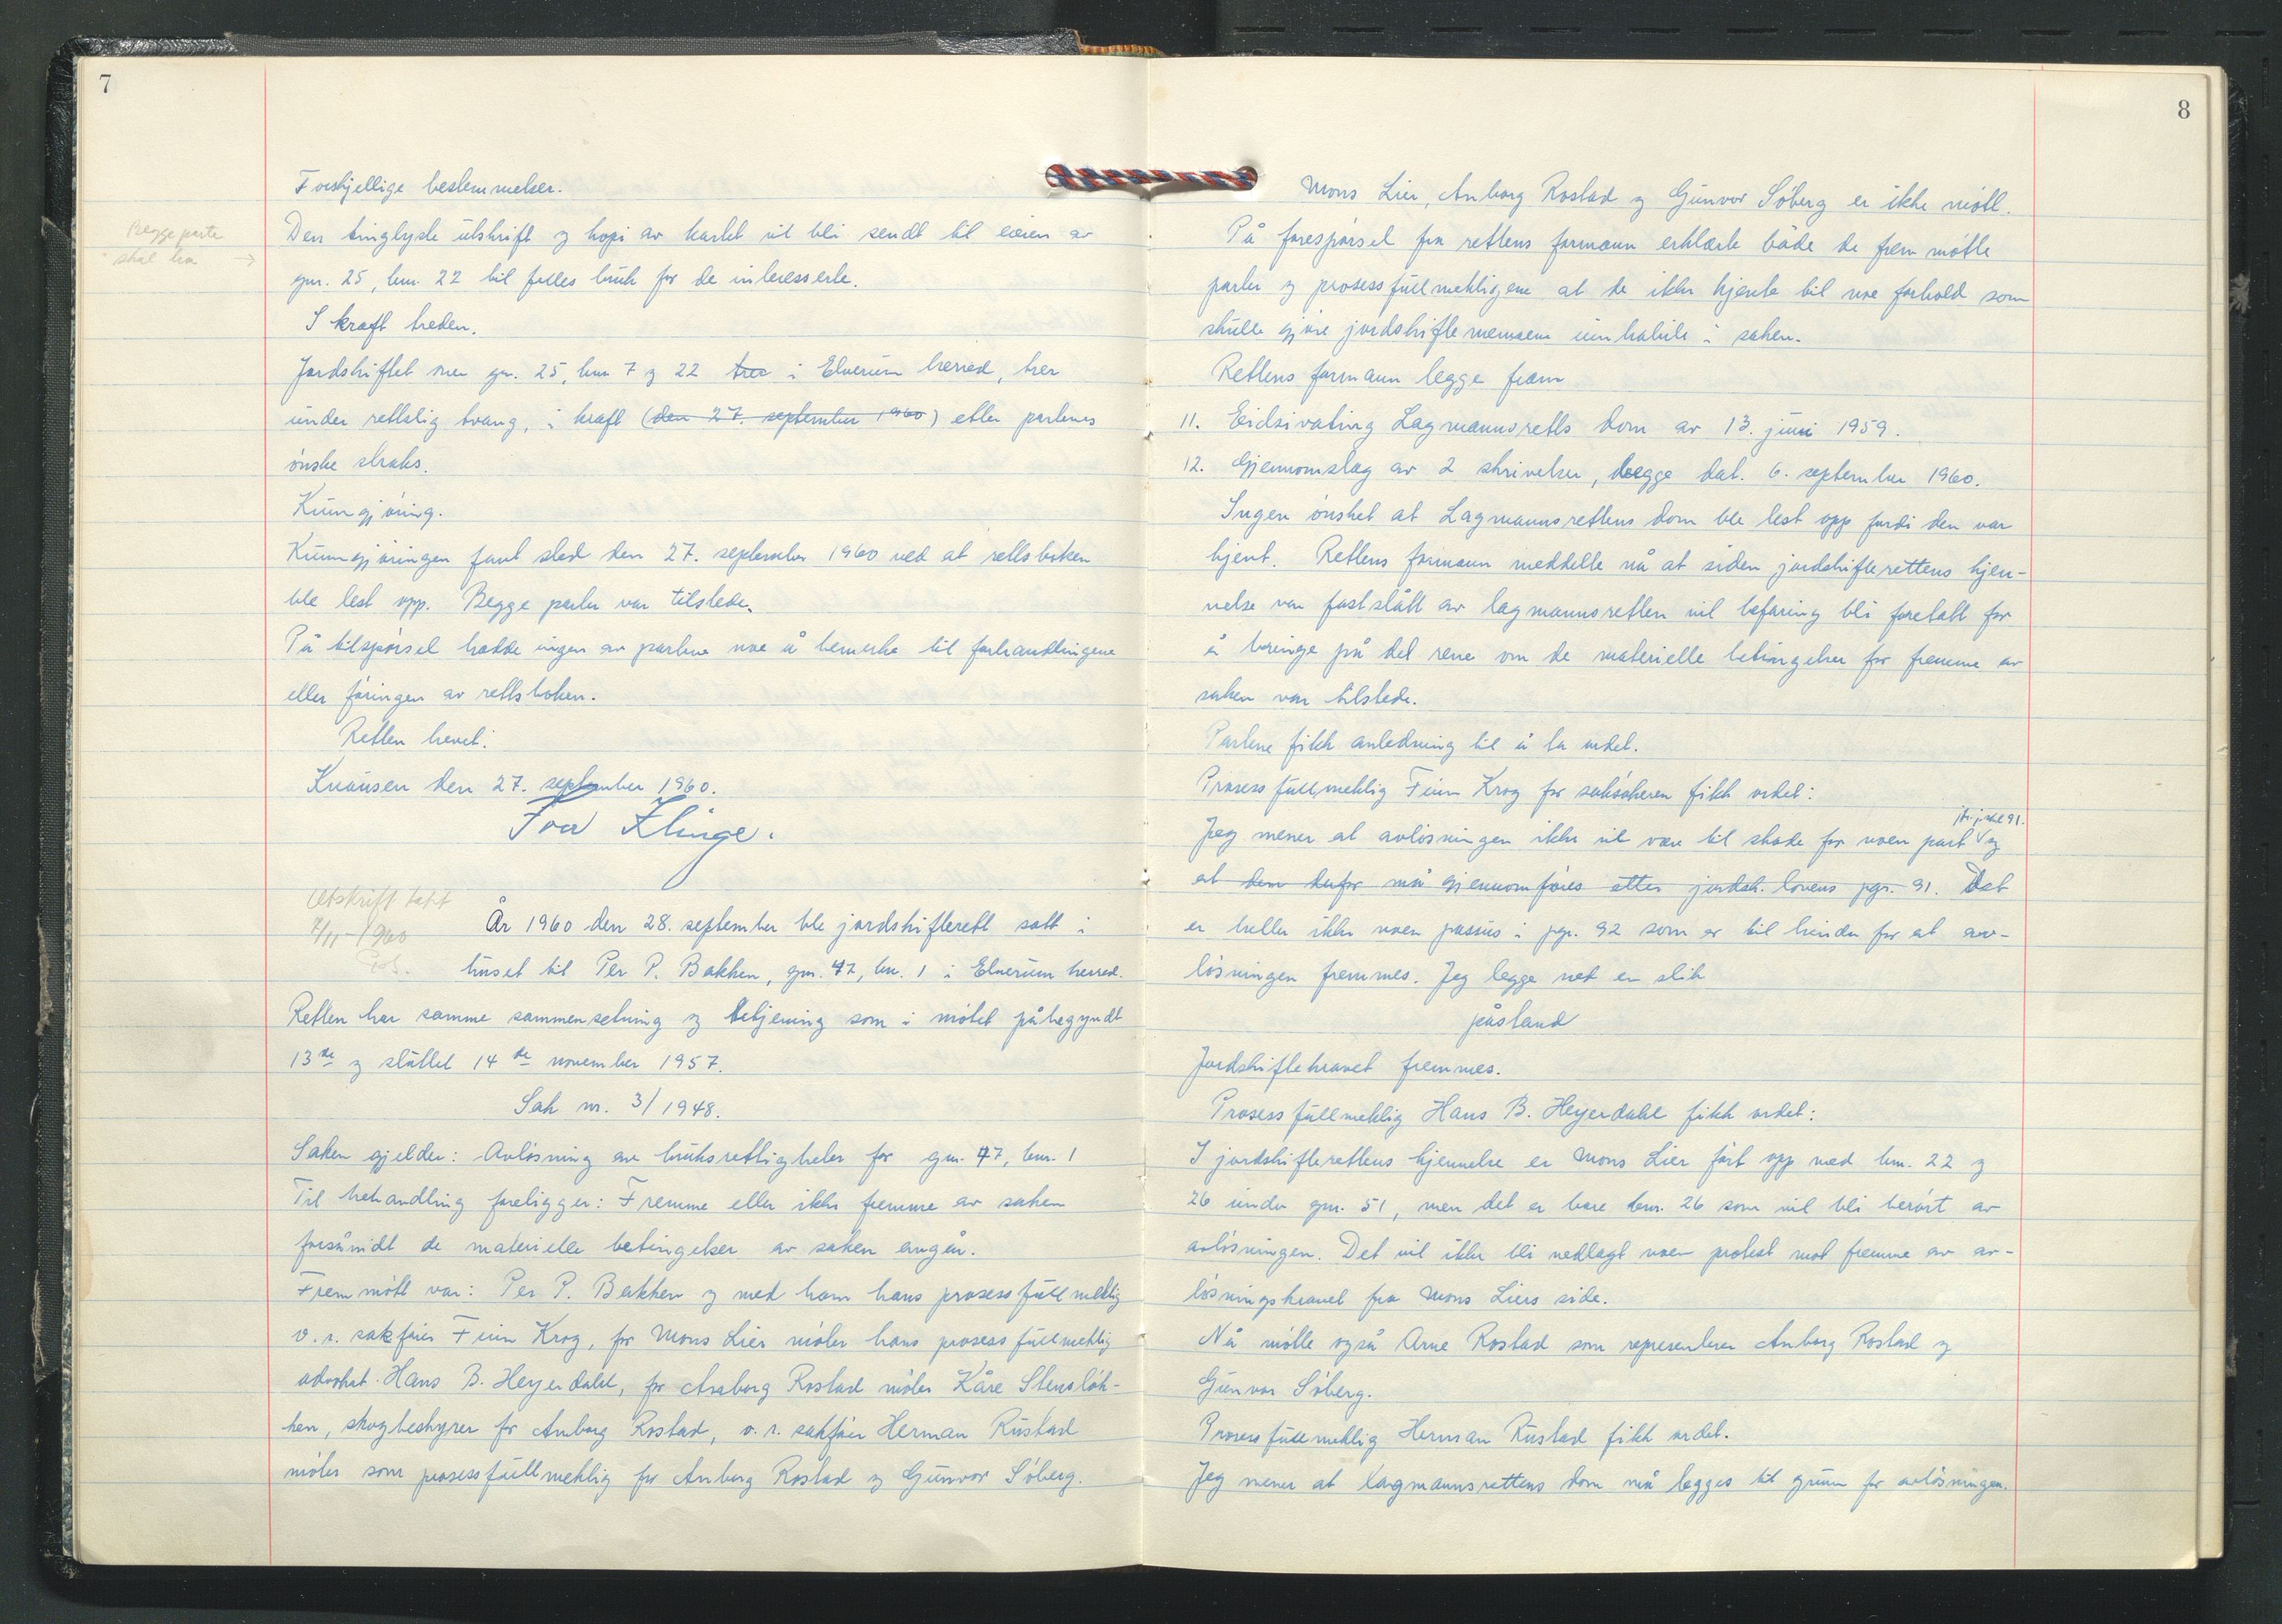 7
Forskjellige bestemmelser.
Begge parter
skal ha →
Den tinglyste utskrift og kopi av kartet vil bli sendt til eieren av
gnr. 25, bnr. 22 til felles bruk for de interesserte.
I kraft treden.
Jordskiftet over gnr. 25, bnr. 7 og 22 trer i Elverum herred, trer
under rettslig tvang, i kraft (den 27. september 1960) etter partenes
ønske straks.
Kunngjøring.
Kunngjøringen fant sted den 27. september 1960 ved at rettsboken
ble lest opp. Begge parter var tilstede.
På tilspørsel hadde ingen av partene noe å bemerke til forhandlingene
eller føringen av rettsboken.
Retten hevet.
Knausen den 27. september 1960.
Ivar Klinge.
Utskrift tatt
7/11-1960
År 1960 den 28. september ble jordskifterett satt i
huset til Per P. Bakken, gnr. 47, bnr. 1 i Elverum herred.
Retten har samme sammensetning og betjening som i møtet påbegyndt
13de og sluttet 14de november 1957.
Sak nr. 3/1948.
Saken gjelder: Avløsning av bruksrettigheter for gnr. 47, bnr. 1
Til behandling foreligger: Fremme eller ikke fremme av saken
forsåvidt de materielle betingelser av saken angår.
Fremmøtt var: Per P. Bakken og med ham hans prosessfullmektig
o.r. sakfører Finn Krog, for Mons Lier møter hans prosessfullmektig
advokat Hans B. Heyerdahl, for Anborg Rostad møter Kåre Stensløk-
ken, skogbestyrer for Anborg Rostad, o.r. sakfører Herman Rustad
møter som prosessfullmektig for Anborg Rostad og Gunvor Søberg.
8
Mons Lier, Anborg Rostad og Gunvor Søberg er ikke møtt.
På forespørsel fra rettens formann erklærte både de frem møtte
parter og prosessfullmektigene at de ikke kjente til noe forhold som
skulle gjøre jordskiftemennene innhabile i saken.
Rettens formann legge fram
11. Eidsivating Lagmannsretts dom av 13. juni 1959.
12. Gjennomslag av 2 skrivelser, begge dat. 6. september 1960.
Ingen ønsket at Lagmannsrettens dom ble lest opp fordi den var
kjent. Rettens formann meddelte nå at siden jordskifterettens kjen-
nelse var fastslått av lagmannsretten vil befaring bli foretatt for
å bringe på det rene om de materielle betingelser for fremme av
saken var tilstede.
Partene fikk anledning til å ta ordet.
Prosessfullmektig Finn Krog for saksøkeren fikk ordet:
Jeg mener at avløsningen ikke vil være til skade for noen part og
at den derfor må gjennomføres etter jordsk. lovens pgr. 91. Det
er heller ikke noen passus i pgr. 92 som er til hinder for at av-
løsningen fremmes. Jeg legge ned en slik
påstand
Jordskiftekravet fremmes.
Prosessfullmektig Hans B. Heyerdahl fikk ordet:
I jordskifterettens kjennelse er Mons Lier ført opp med bnr. 22 og
26 under gnr. 51, men det er bare bnr. 26 som vil bli berørt av
avløsningen. Det vil ikke bli nedlagt noen protest mot fremme av av-
løsningskravet fra Mons Liers side.
Nå møtte også Arne Rostad som representerer Anborg Rostad og
Gunvor Søberg.
Prosessfullmektig Herman Rustad fikk ordet.
Jeg mener at lagmannsrettens dom må legges til grunn for avløsningen.